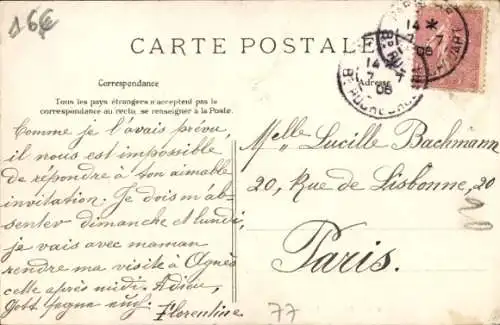 16€
CARTE POSTALE
14 *
7 7
06
DÉPART
14 *
7
06
Bd ROCHECHOU
Correspondance
Adresse
Tous les pays étrangers n'acceptent pas la
correspondance au recto, se renseigner à la Poste.
Comme je l'avais prévu,
il nous est impossible
de répondre à ton aimable
invitation. Je dois m'ab-
senter dimanche et lundi,
je vais avec maman
rendre ma visite à Agnès
cette après midi. Adieu,
Gott segne euch.
Florentine
Melle Lucille Bachmann
20, Rue de Lisbonne, 20
Paris.
77